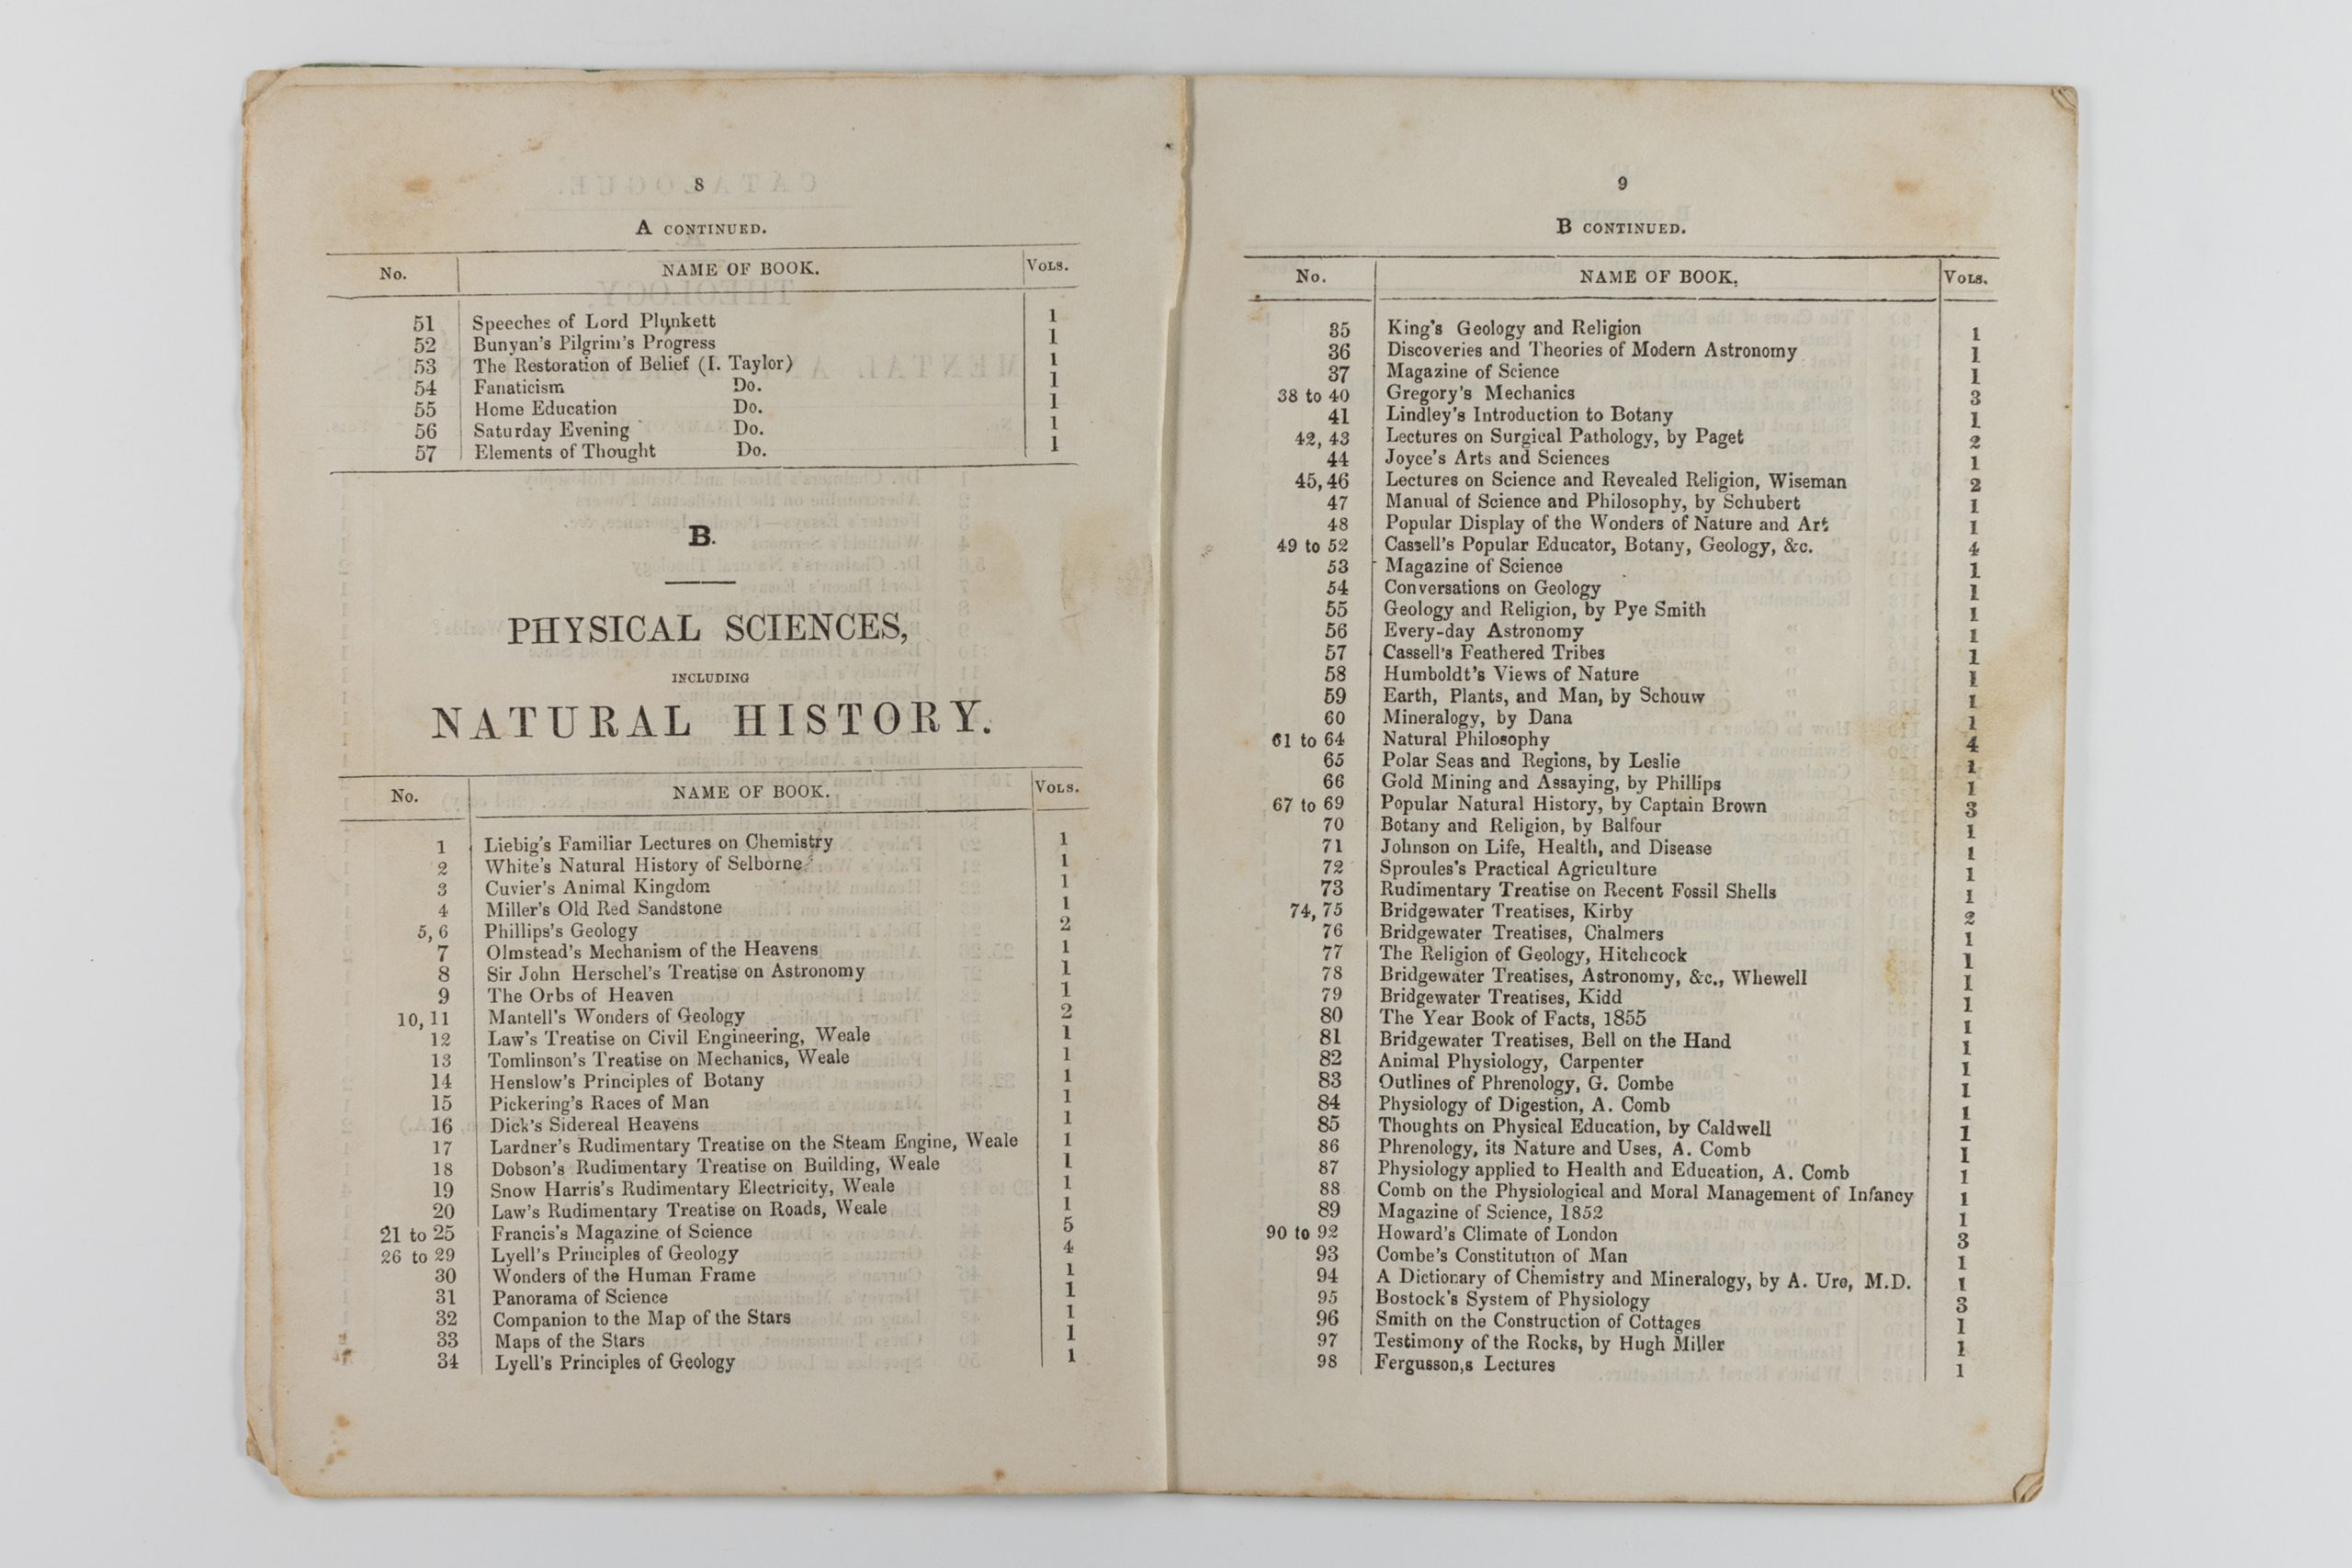 8
A CONTINUED.
No. NAME OF BOOK. VOLS.
51 Speeches of Lord Plunkett 1
52 Bunyan's Pilgrim's Progress 1
53 The Restoration of Belief (I. Taylor) 1
54 Fanaticism Do. 1
55 Home Education Do. 1
56 Saturday Evening Do. 1
57 Elements of Thought Do. 1
B.
PHYSICAL SCIENCES,
INCLUDING
NATURAL HISTORY.
No. NAME OF BOOK. VOLS.
1 Liebig's Familiar Lectures on Chemistry 1
2 White's Natural History of Selborne 1
3 Cuvier's Animal Kingdom 1
4 Miller's Old Red Sandstone 1
5, 6 Phillips's Geology 2
7 Olmstead's Mechanism of the Heavens 1
8 Sir John Herschel's Treatise on Astronomy 1
9 The Orbs of Heaven 1
10, 11 Mantell's Wonders of Geology 2
12 Law's Treatise on Civil Engineering, Weale 1
13 Tomlinson's Treatise on Mechanics, Weale 1
14 Henslow's Principles of Botany 1
15 Pickering's Races of Man 1
16 Dick's Sidereal Heavens 1
17 Lardner's Rudimentary Treatise on the Steam Engine, Weale 1
18 Dobson's Rudimentary Treatise on Building, Weale 1
19 Snow Harris's Rudimentary Electricity, Weale 1
20 Law's Rudimentary Treatise on Roads, Weale 1
21 to 25 Francis's Magazine of Science 5
26 to 29 Lyell's Principles of Geology 4
30 Wonders of the Human Frame 1
31 Panorama of Science 1
32 Companion to the Map of the Stars 1
33 Maps of the Stars 1
34 Lyell's Principles of Geology 1
9
B CONTINUED.
No. NAME OF BOOK. VOLS.
35 King's Geology and Religion 1
36 Discoveries and Theories of Modern Astronomy 1
37 Magazine of Science 1
38 to 40 Gregory's Mechanics 3
41 Lindley's Introduction to Botany 1
42, 43 Lectures on Surgical Pathology, by Paget 2
44 Joyce's Arts and Sciences 1
45, 46 Lectures on Science and Revealed Religion, Wiseman 2
47 Manual of Science and Philosophy, by Schubert 1
48 Popular Display of the Wonders of Nature and Art 1
49 to 52 Cassell's Popular Educator, Botany, Geology, &c. 4
53 Magazine of Science 1
54 Conversations on Geology 1
55 Geology and Religion, by Pye Smith 1
56 Every-day Astronomy 1
57 Cassell's Feathered Tribes 1
58 Humboldt's Views of Nature 1
59 Earth, Plants, and Man, by Schouw 1
60 Mineralogy, by Dana 1
61 to 64 Natural Philosophy 4
65 Polar Seas and Regions, by Leslie 1
66 Gold Mining and Assaying, by Phillips 1
67 to 69 Popular Natural History, by Captain Brown 3
70 Botany and Religion, by Balfour 1
71 Johnson on Life, Health, and Disease 1
72 Sproules's Practical Agriculture 1
73 Rudimentary Treatise on Recent Fossil Shells 1
74, 75 Bridgewater Treatises, Kirby 2
76 Bridgewater Treatises, Chalmers 1
77 The Religion of Geology, Hitchcock 1
78 Bridgewater Treatises, Astronomy, &c., Whewell 1
79 Bridgewater Treatises, Kidd 1
80 The Year Book of Facts, 1855 1
81 Bridgewater Treatises, Bell on the Hand 1
82 Animal Physiology, Carpenter 1
83 Outlines of Phrenology, G. Combe 1
84 Physiology of Digestion, A. Comb 1
85 Thoughts on Physical Education, by Caldwell 1
86 Phrenology, its Nature and Uses, A. Comb 1
87 Physiology applied to Health and Education, A. Comb 1
88 Comb on the Physiological and Moral Management of Infancy 1
89 Magazine of Science, 1852 1
90 to 92 Howard's Climate of London 3
93 Combe's Constitution of Man 1
94 A Dictionary of Chemistry and Mineralogy, by A. Ure, M.D. 1
95 Bostock's System of Physiology 3
96 Smith on the Construction of Cottages 1
97 Testimony of the Rocks, by Hugh Miller 1
98 Fergusson,s Lectures 1